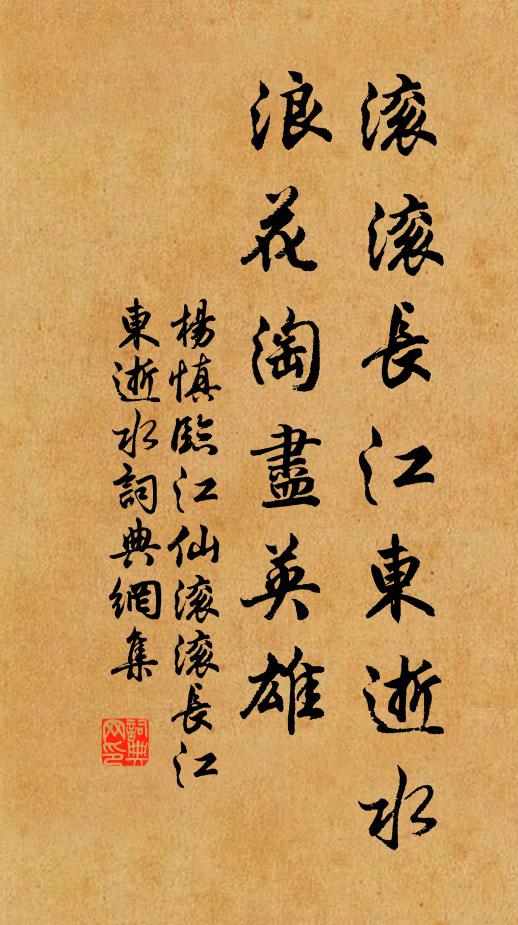 滚滚長江東逝水
浪花淘盡英雄
楊慎臨江仙滚滚長江
東逝水詞典網集
詞典網印